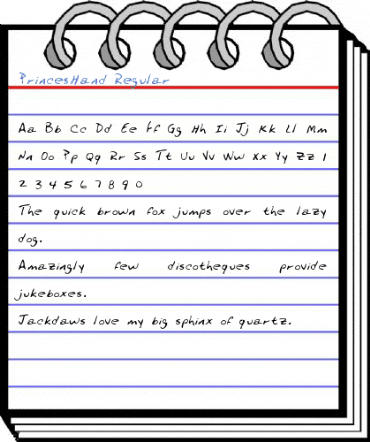 PrincesHand Regular
Aa Bb Cc Dd Ee Ff Gg Hh Ii Jj Kk Ll Mm
Nn Oo Pp Qq Rr Ss Tt Uu Vv Ww Xx Yy Zz 1
2 3 4 5 6 7 8 9 0
The quick brown fox jumps over the lazy
dog.
Amazingly few discotheques provide
jukeboxes.
Jackdaws love my big sphinx of quartz.